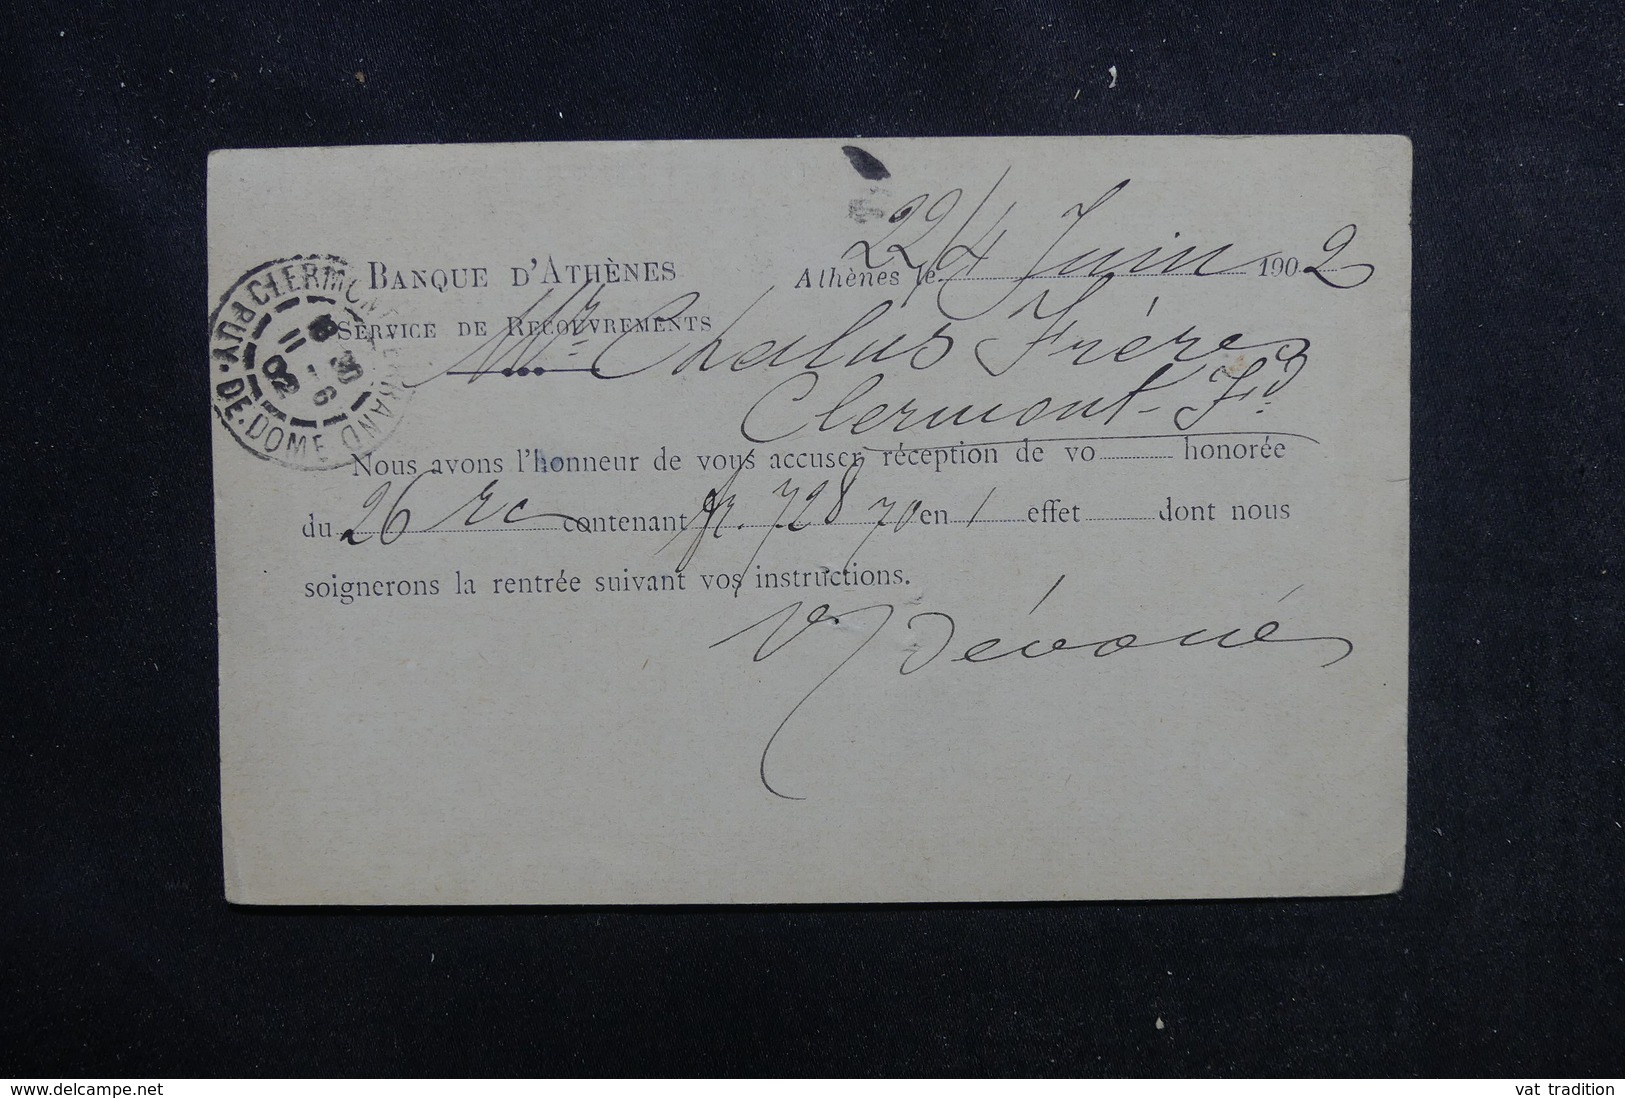 BANQUE D'ATHÈNES
SERVICE DE RECOUVREMENTS
Athènes le 22/4 Juin 1902
Mr Chalus Frères
Clermont-Fd
Nous avons l'honneur de vous accuser réception de vo honorée
du 26 éc contenant fr. 728 70 en 1 effet dont nous
soignerons la rentrée suivant vos instructions.
V. Dévoués
CLERMONT FERRAND
PUY-DE-DOME
8 30
11 -6
02
www.delcampe.net
vat tradition